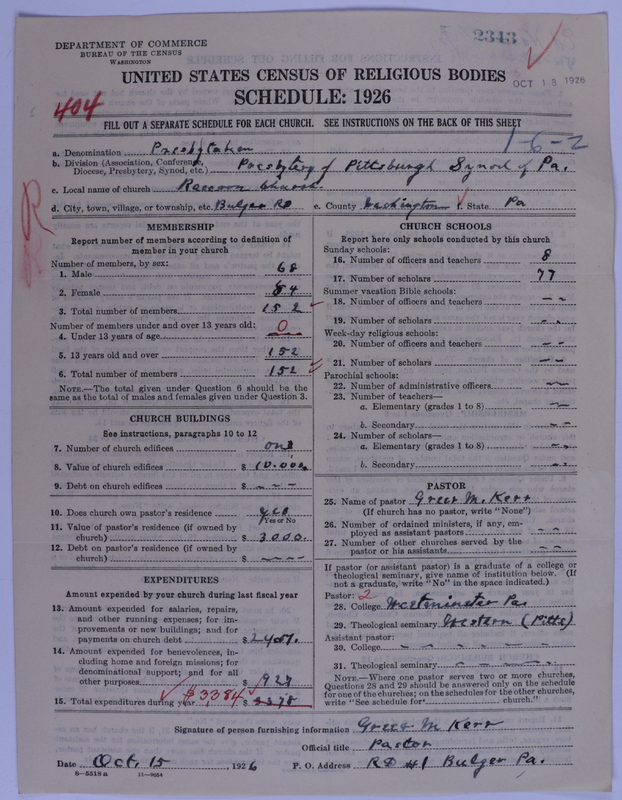 2343
DEPARTMENT OF COMMERCE
BUREAU OF THE CENSUS
WASHINGTON
UNITED STATES CENSUS OF RELIGIOUS BODIES
OCT 18 1926
SCHEDULE: 1926
404
FILL OUT A SEPARATE SCHEDULE FOR EACH CHURCH. SEE INSTRUCTIONS ON THE BACK OF THIS SHEET
1-6-2
a. Denomination Presbyterian
b. Division (Association, Conference, Diocese, Presbytery, Synod, etc.) Presbytery of Pittsburgh Synod of Pa.
c. Local name of church Raccoon Church
d. City, town, village, or township, etc. Bulger RD e. County Washington f. State Pa
R
MEMBERSHIP
Report number of members according to definition of
member in your church
Number of members, by sex:
1. Male 68
2. Female 84
3. Total number of members 152
Number of members under and over 13 years old:
4. Under 13 years of age 0
5. 13 years old and over 152
6. Total number of members 152
NOTE.—The total given under Question 6 should be the
same as the total of males and females given under Question 3.
CHURCH BUILDINGS
See instructions, paragraphs 10 to 12
7. Number of church edifices one
8. Value of church edifices $ 10.000.
9. Debt on church edifices $ - - -
10. Does church own pastor's residence yes
Yes or No
11. Value of pastor's residence (if owned by
church) $ 3000.
12. Debt on pastor's residence (if owned by
church) $ - - -
EXPENDITURES
Amount expended by your church during last fiscal year
13. Amount expended for salaries, repairs,
and other running expenses; for im-
provements or new buildings; and for
payments on church debt $ 2457.
14. Amount expended for benevolences, in-
cluding home and foreign missions; for
denominational support; and for all
other purposes $ 927
$3384
15. Total expenditures during year $
CHURCH SCHOOLS
Report here only schools conducted by this church
Sunday schools:
16. Number of officers and teachers 8
17. Number of scholars 77
Summer vacation Bible schools:
18. Number of officers and teachers - -
19. Number of scholars - -
Week-day religious schools:
20. Number of officers and teachers - -
21. Number of scholars - -
Parochial schools:
22. Number of administrative officers - -
23. Number of teachers—
a. Elementary (grades 1 to 8) - -
b. Secondary - -
24. Number of scholars—
a. Elementary (grades 1 to 8) - -
b. Secondary - -
PASTOR
25. Name of pastor Greer M. Kerr
(If church has no pastor, write "None")
26. Number of ordained ministers, if any, em-
ployed as assistant pastors - -
27. Number of other churches served by the
pastor or his assistants - -
If pastor (or assistant pastor) is a graduate of a college or
theological seminary, give name of institution below. (If
not a graduate, write "No" in the space indicated.)
Pastor: 2
28. College Westminster Pa.
29. Theological seminary Western (Pitts)
Assistant pastor:
30. College - - - -
31. Theological seminary - - - -
NOTE.—Where one pastor serves two or more churches,
Questions 28 and 29 should be answered only on the schedule
for one of the churches; on the schedules for the other churches,
write "See schedule for church."
Signature of person furnishing information Greer M Kerr
Official title Pastor
Date Oct. 15, 1926 P. O. Address RD #1 Bulger Pa.
8—5518a 11—9654